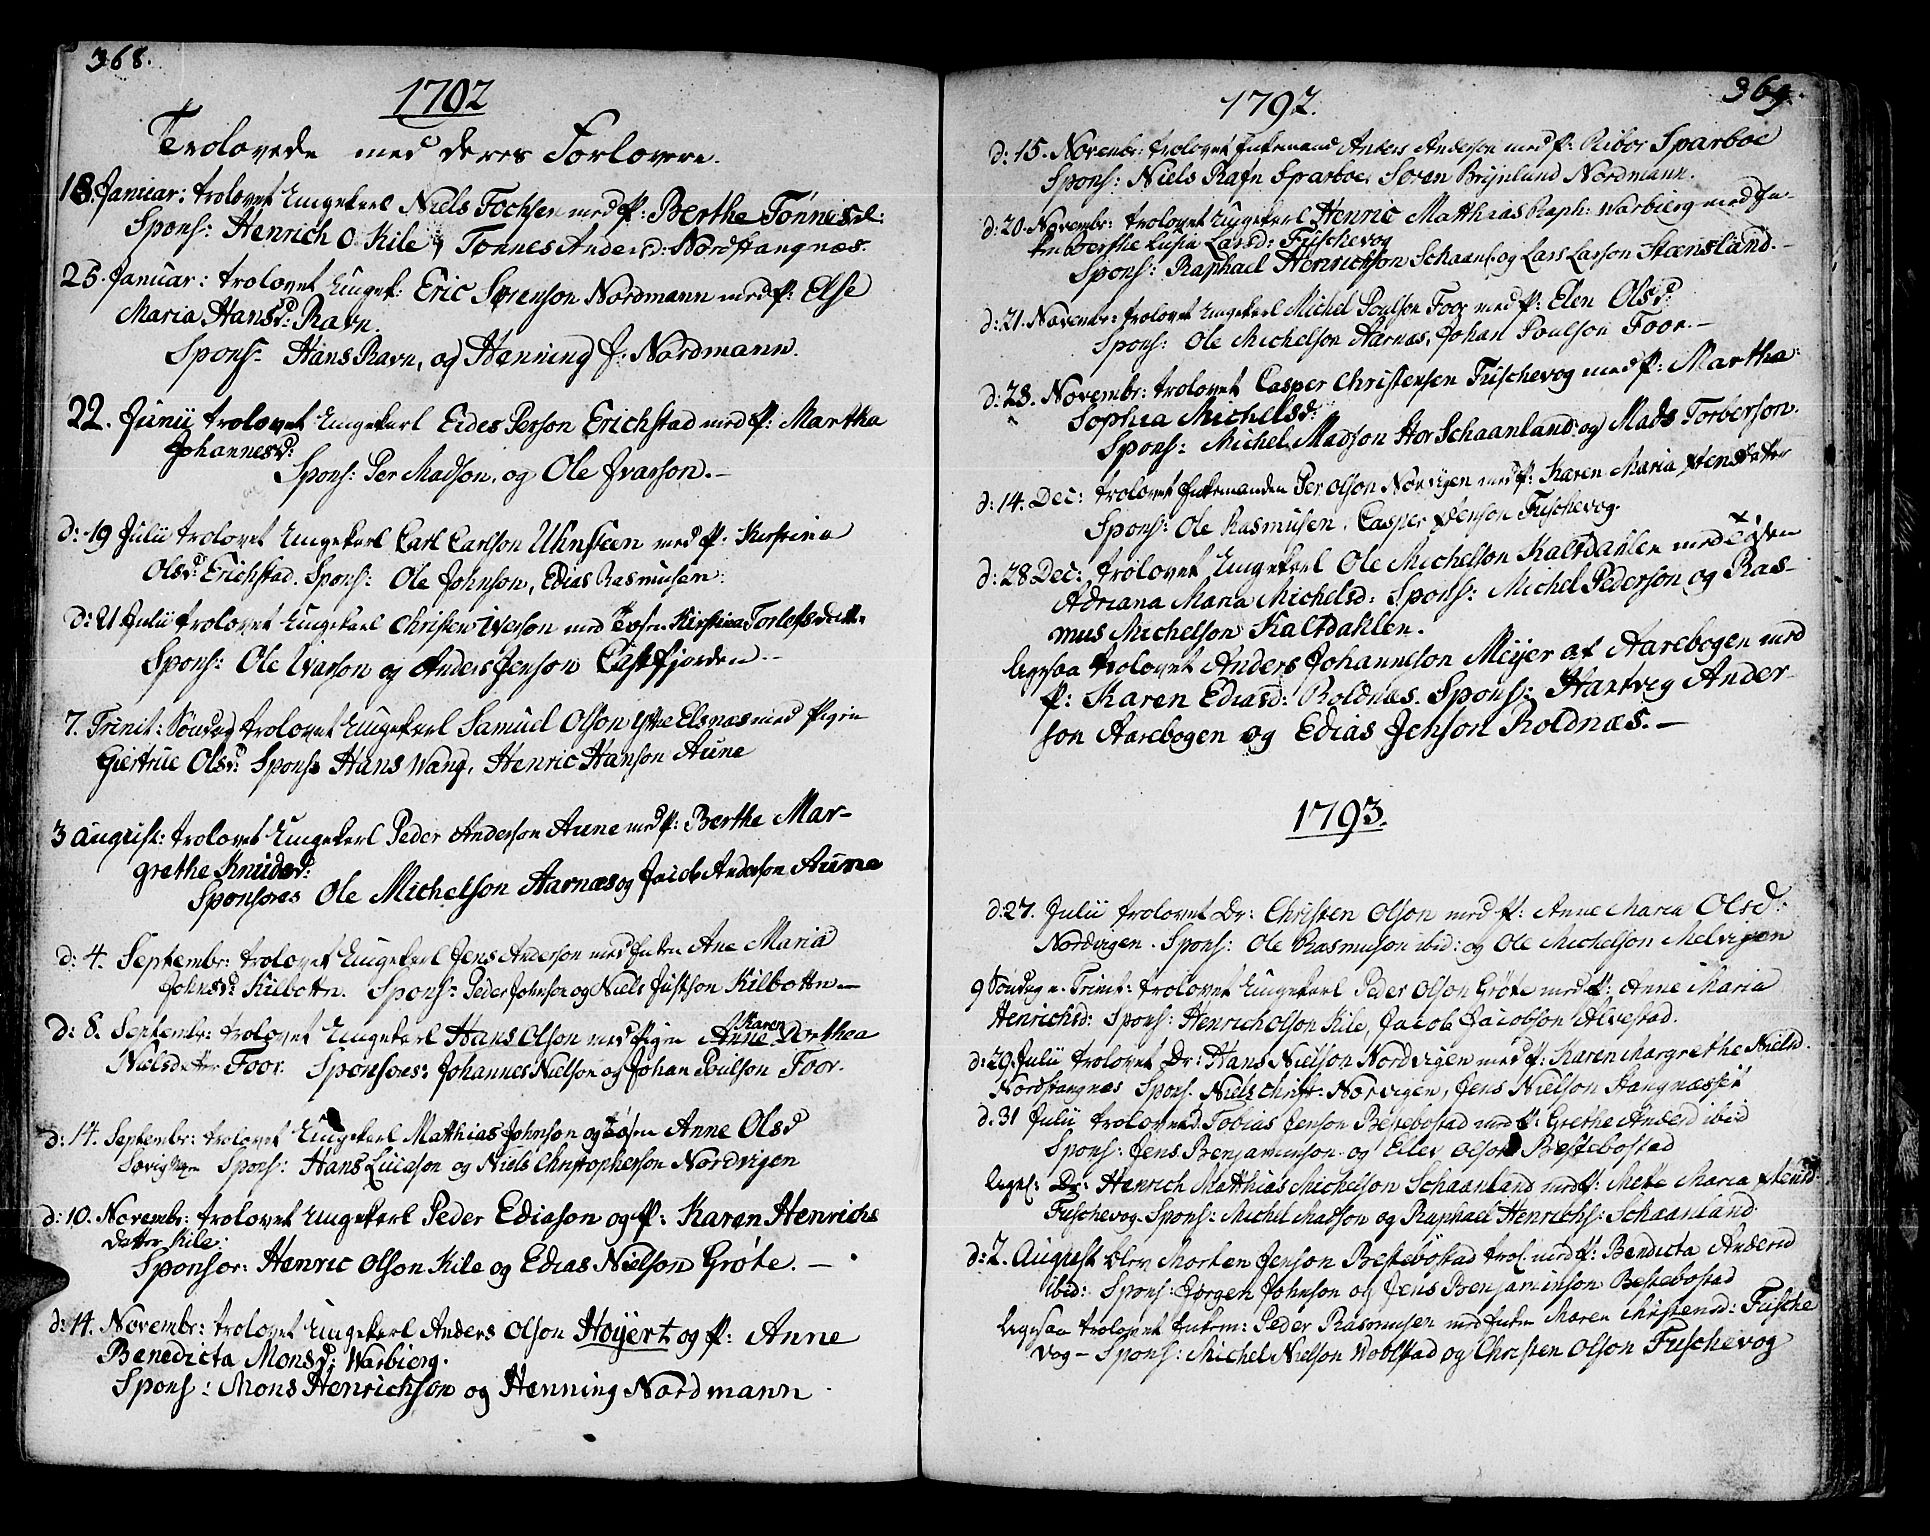 368.
1702
Trolovede med deres Forlovere.
18. Januar: trolovet Ungekerl Niels Fochsen med P: Berthe Tonnesd:
Spons: Henrich O. Kile, Tonnes Andersd: Nordstangnæs.
25. Januar: trolovet Ungek: Eric Sørenson Nordmann med P: Else
Maria Hansd: Ravn.
Spons: Hans Ravn, og Henning J. Nordmann.
22. Junii trolovet Ungekerl Eides Person Erichstad med P: Martha
Johannesd:
Spons: Per Madson, og Ole Ivarson.—
d: 19 Julii trolovet Ungekerl Carl Carlson Uhnsteen med P. Kirstina
Olsd: Erichstad. Spons: Ole Johnson, Edias Rasmusen:
d: 21 Julii trolovet Ungekerl Christen Iverson med Tøsen Kirstina Torlefsdatt:
Spons: Ole Ivarson og Anders Jenson Castfjorden.—
7. Trinit: Søndag trolovet Ungekerl Samuel Olson Elsnæs med Pigen
Giertrue Olsd: Spons: Hans Wang, Henric Hanson Aune
3 August: trolovet Ungekerl Peder Anderson Aune med P: Berthe Mar-
grethe Knudsd:
Sponsores Ole Michelson Aarnæs og Jacob Anderson Aune
d: 4. Septembr: trolovet Ungekerl Jens Anderson med Enken Ane Maria
Johnsd: Kilbottn. Spons: Peder Johnson og Niels Justson Kilbottn—
d: 8. Septembr: trolovet Ungekerl Hans Olson med Pigen Anne Karen Dorthea
Nielsdatter Foor. Sponsores: Johannes Nielson og Johan Poulson Foor.
d: 14. Septembr: trolovet Ungekerl Matthias Johnson og Tøsen Anne Olsd
Sørvigen Spons: Hans Luiason og Niels Christopherson Nordvigen
d: 10. Novembr: trolovet Ungekerl Peder Ediason og P: Karen Henrichs
datter Kile:
Sponsor: Henric Olson Kile og Edias Nielson Grøte.—
d: 14. Novembr: trolovet Ungekerl Anders Olson Hoyertz og P: Anne
Benedicta Monsd: Warbierg.
Spons: Mons Henrichson og Henning Nordmann
369.
1792.
d: 15. Novembr: trolovet Enkemand Anders Anderson med P: Ribor Sparboe
Spons: Niels Rafn Sparboe, Søren Brynlund Nordmann.
d: 20. Novembr: trolovet Ungekerl Henric Matthias Raph: Warbierg med En-
ken Berthe Lusia Larsd: Fuschevog
Spons: Raphael Henrichson Schaanl. og Lars Larson Stænsland.—
d: 21. Novembr: trolovet Ungekerl Michel Poulson Foor med P: Elen Olsd:
Spons: Ole Michelson Aarnæs, Johan Poulson Foor.—
d: 23. Novembr: trolovet Casper Christensen Fuschevog med P: Martha
Sophia Michelsd:
Spons: Michel Madson Stor Schaanland: og Mads Torberson.
d: 14. Dec: trolovet Enkemanden Per Olson Norvigen med P: Karen Maria Jensdatter
Spons: Ole Rasmusen, Casper Jenson Fuschevog.
d: 28 Dec: trolovet Ungekerl Ole Michelson Kaltdahlen med Tøsen
Adriana Maria Michelsd: Spons: Michel Pederson og Ras-
mus Michelson Kaltdahlen.
ligesaa trolovet Anders Johanneson Meyer af Aarebogen med
P: Karen Ediasd: Roldnæs. Spons: Hartvig Ander-
son Aarebogen og Edias Jenson Roldnæs.—
1793.
d: 27. Julii trolovet Dr: Christen Olson med P: Anne Maria Olsd:
Nordvigen. Spons: Ole Rasmuson ibid: og Ole Michelson Melvigen
9 Søndag e. Trinit: trolovet Ungekerl Peder Olson Grøte med P: Anne Maria
Henrichsd: Spons: Henrich Olson Kile, Jacob Jacobson Alvestad.
d: 29 Julii trolovet Dr: Hans Nielson Nordvigen med P: Karen Margrethe Nielsd.
Nordstangnæs Spons. Niels Christ: Norvigen, Jens Nielson Stangnæsset
d. 31 Julii trolovet Tobias Jenson Bestebostad med P: Grethe Andersd ibid
Spons: Jens Benjaminson og Eller Olson Bestebostad
liges: Dr: Henrich Matthias Michelson Schaanland med P: Mette Maria Jensd:
Fuschevog. Spons: Michel Madson og Raphael Henrichs: Schaanland.
d: 2. August blev Morten Jenson Bestebostad trol: med P: Bendicta Andersd
ibid: Spons: Jørgen Johnson og Jens Benjaminson Bestebostad
ligesaa trolovet Enkem: Peder Rasmusen med Enken Maren Christensd: Fusche
vog— Spons: Michel Nielson Woblstad og Christen Olson Fuschevog